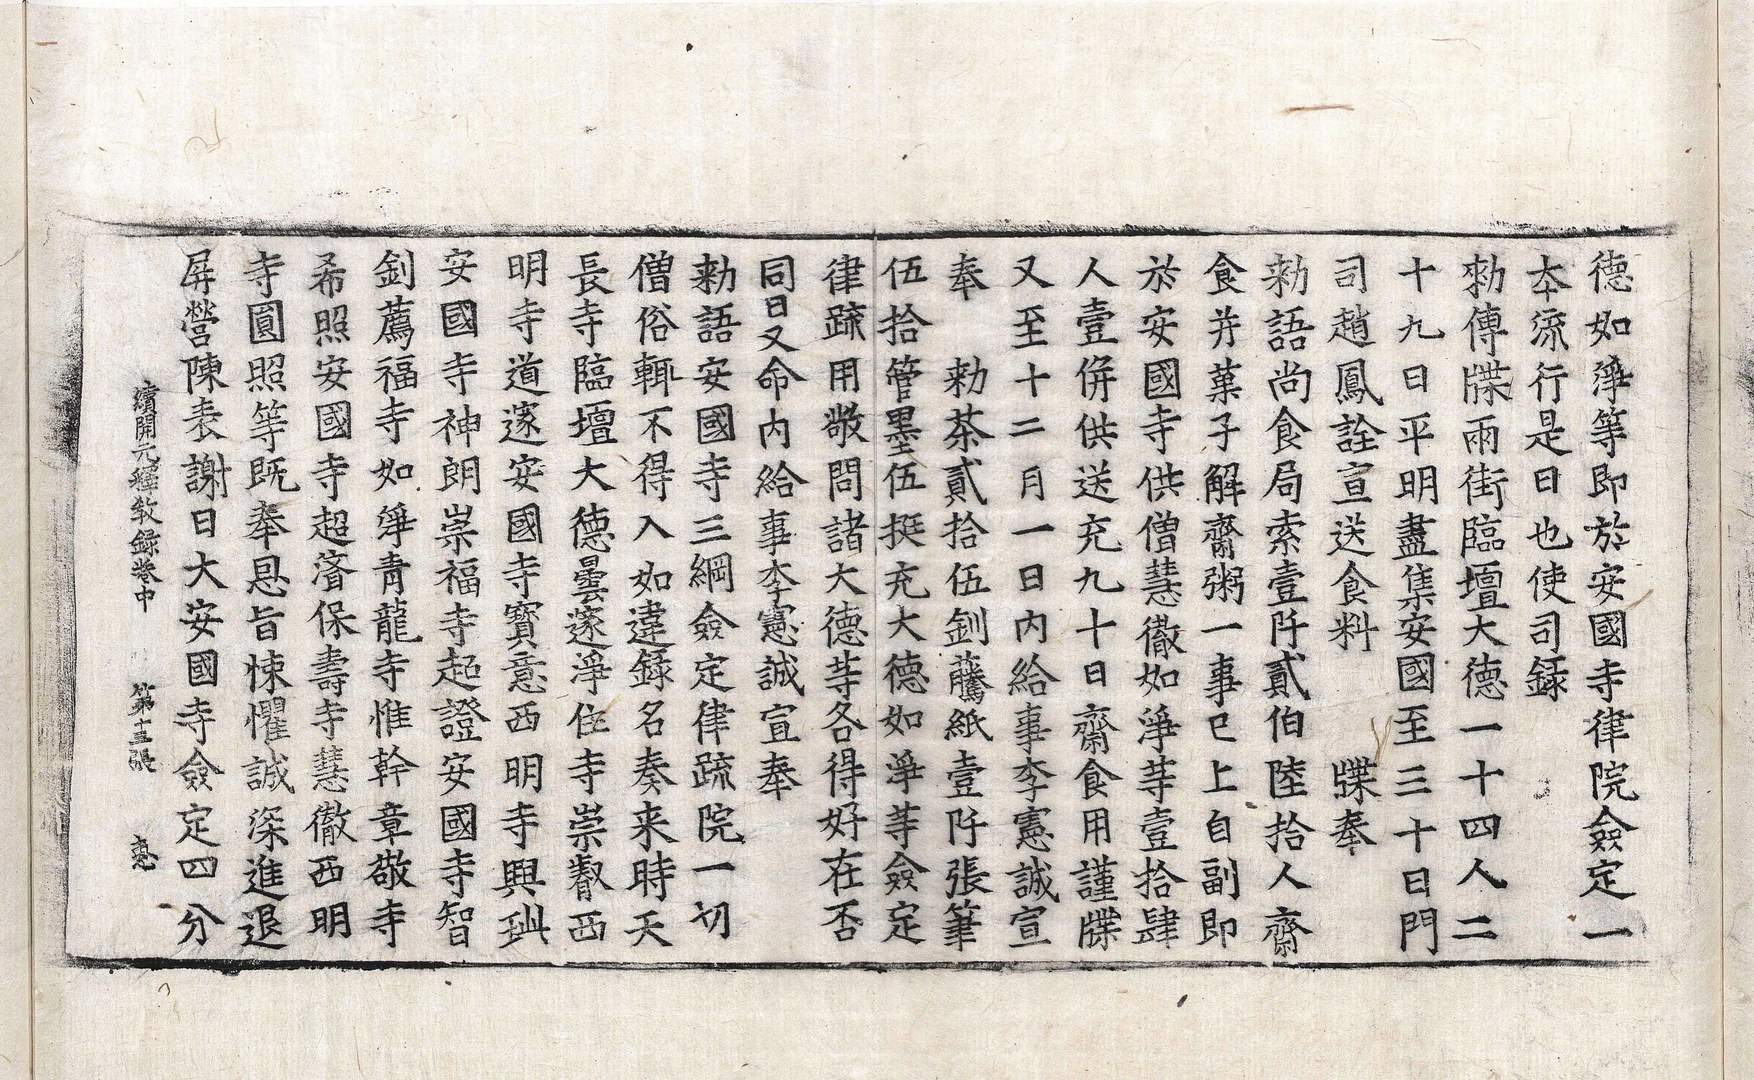 德如淨等即於安國寺律院僉定一
本流行是日也使司錄
勑傳牒兩街臨壇大德一十四人二
十九日平明盡集安國至三十日門
司趙鳳詮宣送食料　牒奉
勑語尚食局索壹阡貳伯陸拾人齋
食并菓子解齋粥一事已上自副即
於安國寺供僧慧徹如淨䓁壹拾肆
人壹併供送充九十日齋食用謹牒
又至十二月一日內給事李憲誠宣
奉　勑茶貳拾伍釧藤紙壹阡張筆
伍拾管墨伍挺充大德如淨䓁僉定
律䟽用敬問諸大德䓁各得好在否
同日又命內給事李憲誠宣奉
勑語安國寺三綱僉定律䟽院一切
僧俗輒不得入如違錄名奏来時天
長寺臨壇大德曇邃淨住寺崇叡西
明寺道邃安國寺寶意西明寺興玼
安國寺神朗崇福寺超證安國寺智
釗薦福寺如淨青龍寺惟幹章敬寺
希照安國寺超濟保壽寺慧徹西明
寺圓照等既奉恩旨悚懼誠深進退
屏營陳表謝曰大安國寺僉定四分
續開元經教錄卷中　第十三張